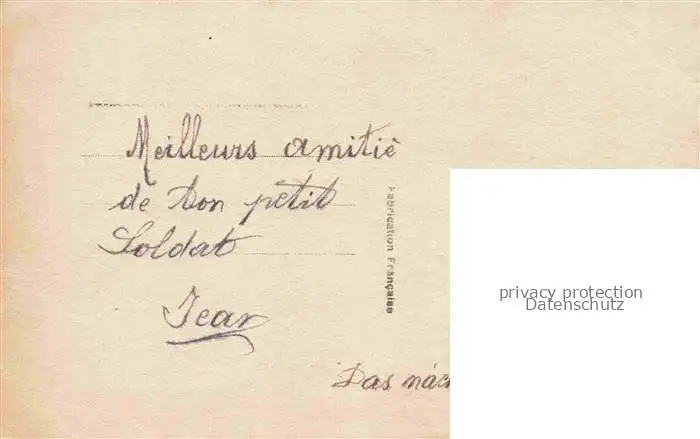 Meilleurs amitié
de ton petit
Soldat
Jean
Fabrication Française
Das näc
privacy protection
Datenschutz